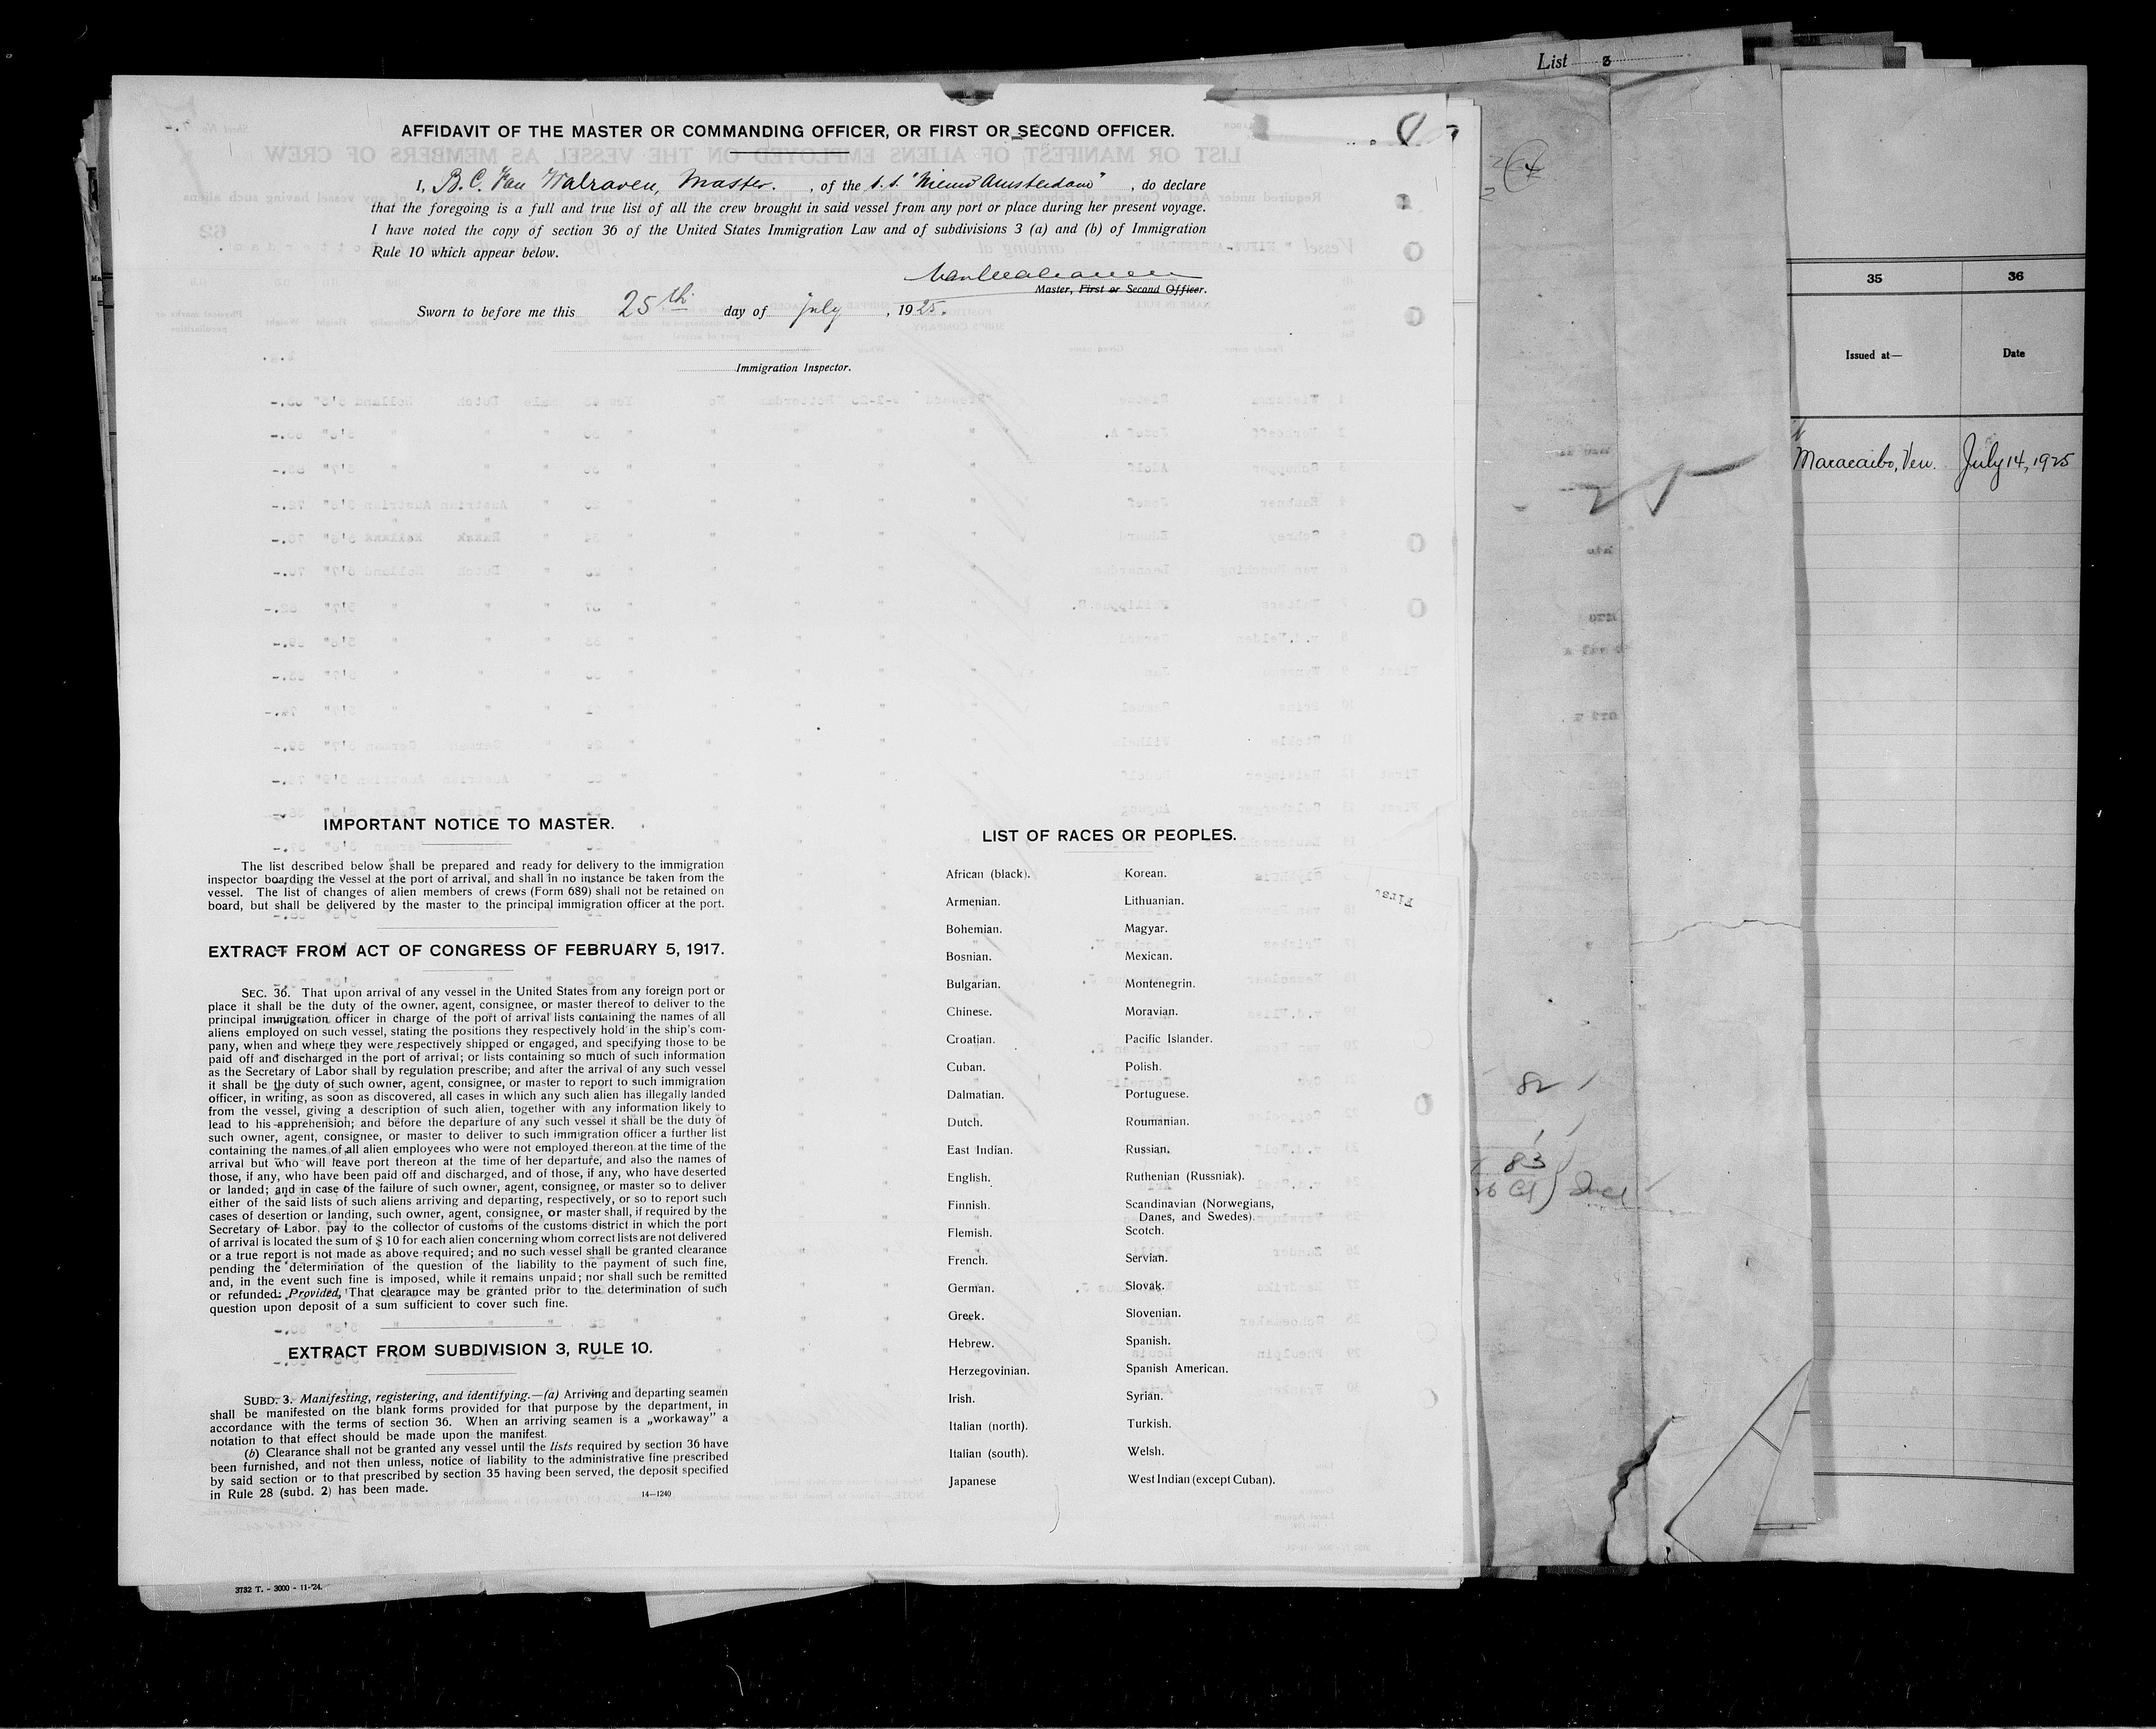 List 3
AFFIDAVIT OF THE MASTER OR COMMANDING OFFICER, OR FIRST OR SECOND OFFICER.
I, B. C. Van Walraven, Master. , of the s.s. "Nieuw Amsterdam" , do declare
that the foregoing is a full and true list of all the crew brought in said vessel from any port or place during her present voyage.
I have noted the copy of section 36 of the United States Immigration Law and of subdivisions 3 (a) and (b) of Immigration
Rule 10 which appear below.
Master, First or Second Officer.
Sworn to before me this 25th day of july , 1925.
Immigration Inspector.
IMPORTANT NOTICE TO MASTER.
The list described below shall be prepared and ready for delivery to the immigration
inspector boarding the vessel at the port of arrival, and shall in no instance be taken from the
vessel. The list of changes of alien members of crews (Form 689) shall not be retained on
board, but shall be delivered by the master to the principal immigration officer at the port.
EXTRACT FROM ACT OF CONGRESS OF FEBRUARY 5, 1917.
SEC. 36. That upon arrival of any vessel in the United States from any foreign port or
place it shall be the duty of the owner, agent, consignee, or master thereof to deliver to the
principal immigration officer in charge of the port of arrival lists containing the names of all
aliens employed on such vessel, stating the positions they respectively hold in the ship's com-
pany, when and where they were respectively shipped or engaged, and specifying those to be
paid off and discharged in the port of arrival; or lists containing so much of such information
as the Secretary of Labor shall by regulation prescribe; and after the arrival of any such vessel
it shall be the duty of such owner, agent, consignee, or master to report to such immigration
officer, in writing, as soon as discovered, all cases in which any such alien has illegally landed
from the vessel, giving a description of such alien, together with any information likely to
lead to his apprehension; and before the departure of any such vessel it shall be the duty of
such owner, agent, consignee, or master to deliver to such immigration officer a further list
containing the names of all alien employees who were not employed thereon at the time of the
arrival but who will leave port thereon at the time of her departure, and also the names of
those, if any, who have been paid off and discharged, and of those, if any, who have deserted
or landed; and in case of the failure of such owner, agent, consignee, or master so to deliver
either of the said lists of such aliens arriving and departing, respectively, or so to report such
cases of desertion or landing, such owner, agent, consignee, or master shall, if required by the
Secretary of Labor, pay to the collector of customs of the customs district in which the port
of arrival is located the sum of $ 10 for each alien concerning whom correct lists are not delivered
or a true report is not made as above required; and no such vessel shall be granted clearance
pending the determination of the question of the liability to the payment of such fine,
and, in the event such fine is imposed, while it remains unpaid; nor shall such be remitted
or refunded: Provided, That clearance may be granted prior to the determination of such
question upon deposit of a sum sufficient to cover such fine.
EXTRACT FROM SUBDIVISION 3, RULE 10.
SUBD. 3. Manifesting, registering, and identifying.—(a) Arriving and departing seamen
shall be manifested on the blank forms provided for that purpose by the department, in
accordance with the terms of section 36. When an arriving seamen is a „workaway” a
notation to that effect should be made upon the manifest.
(b) Clearance shall not be granted any vessel until the lists required by section 36 have
been furnished, and not then unless, notice of liability to the administrative fine prescribed
by said section or to that prescribed by section 35 having been served, the deposit specified
in Rule 28 (subd. 2) has been made.
14—1240
3732 T. - 3000 - 11-'24.
LIST OF RACES OR PEOPLES.
African (black).
Armenian.
Bohemian.
Bosnian.
Bulgarian.
Chinese.
Croatian.
Cuban.
Dalmatian.
Dutch.
East Indian.
English.
Finnish.
Flemish.
French.
German.
Greek.
Hebrew.
Herzegovinian.
Irish.
Italian (north).
Italian (south).
Japanese
Korean.
Lithuanian.
Magyar.
Mexican.
Montenegrin.
Moravian.
Pacific Islander.
Polish.
Portuguese.
Roumanian.
Russian.
Ruthenian (Russniak).
Scandinavian (Norwegians,
Danes, and Swedes).
Scotch.
Servian.
Slovak.
Slovenian.
Spanish.
Spanish American.
Syrian.
Turkish.
Welsh.
West Indian (except Cuban).
82
83
35
36
Issued at—
Date
Maracaibo, Ven.
July 14, 1925